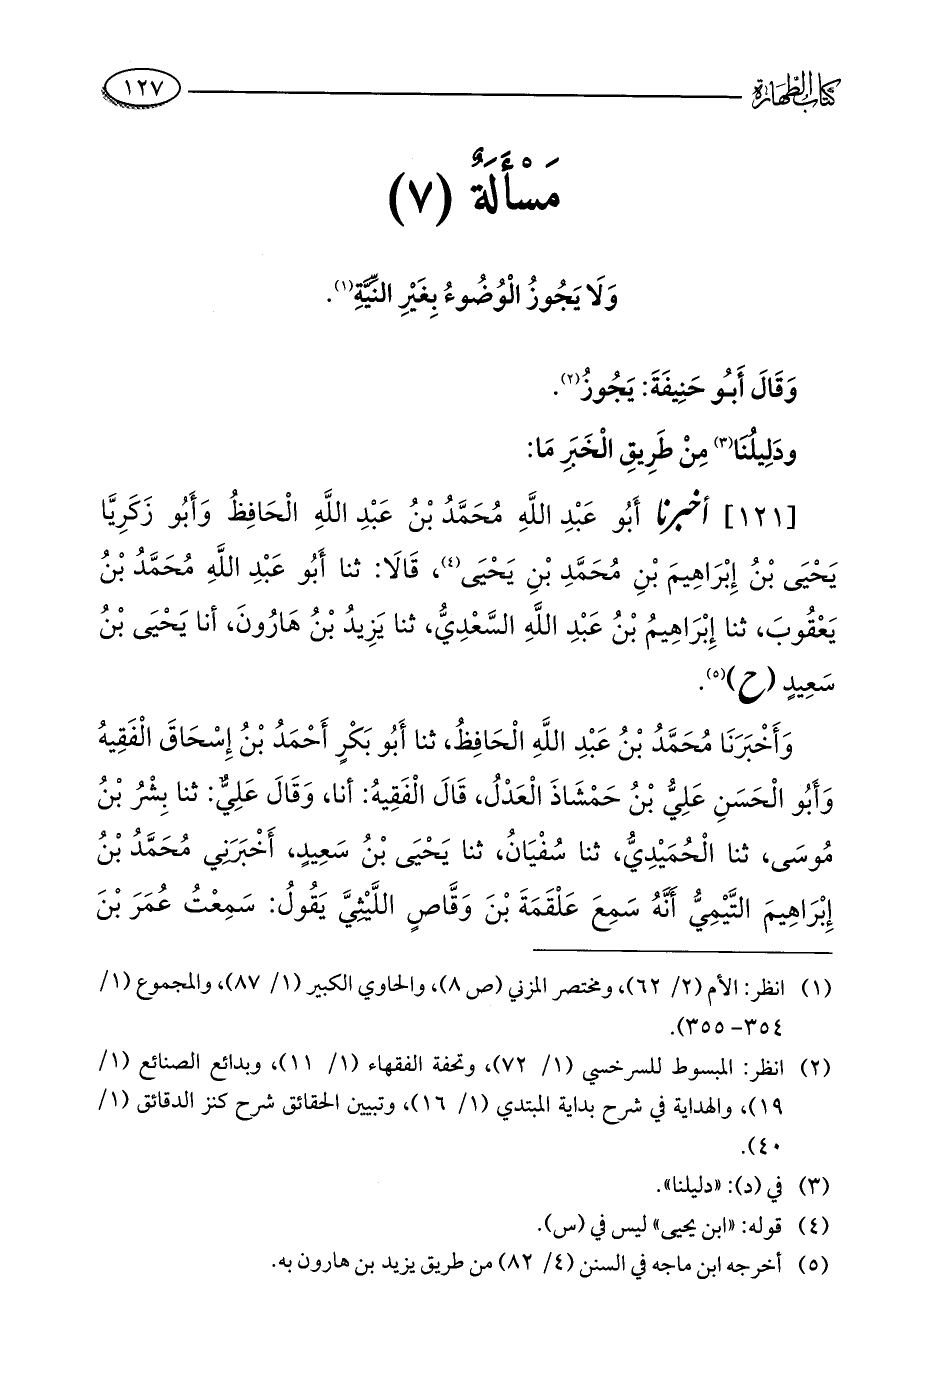 كتاب الطهارة ١٢٧
مَسْأَلَةٌ (٧)
وَلَا يَجُوزُ الْوُضُوءُ بِغَيْرِ النِّيَّةِ(١).
وَقَالَ أَبُو حَنِيفَةَ: يَجُوزُ(٢).
ودَلِيلُنَا(٣) مِنْ طَرِيقِ الْخَبَرِ مَا:
[١٢١] أخبرنا أَبُو عَبْدِ اللَّهِ مُحَمَّدُ بْنُ عَبْدِ اللَّهِ الْحَافِظُ وَأَبُو زَكَرِيَّا
يَحْيَى بْنُ إِبْرَاهِيمَ بْنِ مُحَمَّدِ بْنِ يَحْيَى(٤)، قَالَا: ثنا أَبُو عَبْدِ اللَّهِ مُحَمَّدُ بْنُ
يَعْقُوبَ، ثنا إِبْرَاهِيمُ بْنُ عَبْدِ اللَّهِ السَّعْدِيُّ، ثنا يَزِيدُ بْنُ هَارُونَ، أنا يَحْيَى بْنُ
سَعِيدٍ (ح)(٥).
وَأَخْبَرَنَا مُحَمَّدُ بْنُ عَبْدِ اللَّهِ الْحَافِظُ، ثنا أَبُو بَكْرٍ أَحْمَدُ بْنُ إِسْحَاقَ الْفَقِيهُ
وَأَبُو الْحَسَنِ عَلِيُّ بْنُ حَمْشَاذَ الْعَدْلُ، قَالَ الْفَقِيهُ: أنا، وَقَالَ عَلِيٌّ: ثنا بِشْرُ بْنُ
مُوسَى، ثنا الْحُمَيْدِيُّ، ثنا سُفْيَانُ، ثنا يَحْيَى بْنُ سَعِيدٍ، أَخْبَرَنِي مُحَمَّدُ بْنُ
إِبْرَاهِيمَ التَّيْمِيُّ أَنَّهُ سَمِعَ عَلْقَمَةَ بْنَ وَقَّاصٍ اللَّيْثِيَّ يَقُولُ: سَمِعْتُ عُمَرَ بْنَ
(١) انظر: الأم (٢/ ٦٢)، ومختصر المزني (ص ٨)، والحاوي الكبير (١/ ٨٧)، والمجموع (١/
٣٥٤- ٣٥٥).
(٢) انظر: المبسوط للسرخسي (١/ ٧٢)، وتحفة الفقهاء (١/ ١١)، وبدائع الصنائع (١/
١٩)، والهداية في شرح بداية المبتدي (١/ ١٦)، وتبيين الحقائق شرح كنز الدقائق (١/
٤٠).
(٣) في (د): «دليلنا».
(٤) قوله: «ابن يحيى» ليس في (س).
(٥) أخرجه ابن ماجه في السنن (٤/ ٨٢) من طريق يزيد بن هارون به.